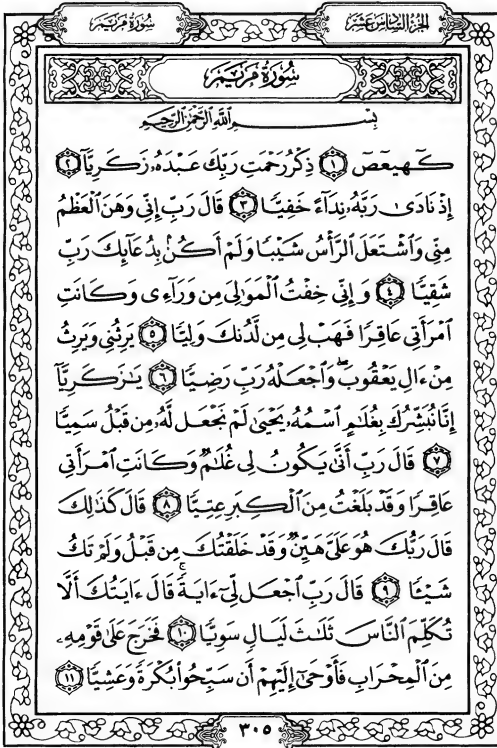 سُورَةُ مَرْيَمَ الجُزْءُ السَّادِسُ عَشَرَ
سُورَةُ مَرْيَمَ
بِسْمِ اللَّهِ الرَّحْمَٰنِ الرَّحِيمِ
كٓهيعٓصٓ ١ ذِكْرُ رَحْمَتِ رَبِّكَ عَبْدَهُۥ زَكَرِيَّآ ٢
إِذْ نَادَىٰ رَبَّهُۥ نِدَآءً خَفِيًّا ٣ قَالَ رَبِّ إِنِّى وَهَنَ ٱلْعَظْمُ
مِنِّى وَٱشْتَعَلَ ٱلرَّأْسُ شَيْبًا وَلَمْ أَكُنۢ بِدُعَآئِكَ رَبِّ
شَقِيًّا ٤ وَإِنِّى خِفْتُ ٱلْمَوَٰلِىَ مِن وَرَآءِى وَكَانَتِ
ٱمْرَأَتِى عَاقِرًا فَهَبْ لِى مِن لَّدُنكَ وَلِيًّا ٥ يَرِثُنِى وَيَرِثُ
مِنْ ءَالِ يَعْقُوبَ ۖ وَٱجْعَلْهُ رَبِّ رَضِيًّا ٦ يَٰزَكَرِيَّآ
إِنَّا نُبَشِّرُكَ بِغُلَٰمٍ ٱسْمُهُۥ يَحْيَىٰ لَمْ نَجْعَل لَّهُۥ مِن قَبْلُ سَمِيًّا
٧ قَالَ رَبِّ أَنَّىٰ يَكُونُ لِى غُلَٰمٌ وَكَانَتِ ٱمْرَأَتِى
عَاقِرًا وَقَدْ بَلَغْتُ مِنَ ٱلْكِبَرِ عِتِيًّا ٨ قَالَ كَذَٰلِكَ
قَالَ رَبُّكَ هُوَ عَلَىَّ هَيِّنٌ وَقَدْ خَلَقْتُكَ مِن قَبْلُ وَلَمْ تَكُ
شَيْـًٔا ٩ قَالَ رَبِّ ٱجْعَل لِّىٓ ءَايَةً ۚ قَالَ ءَايَتُكَ أَلَّا
تُكَلِّمَ ٱلنَّاسَ ثَلَٰثَ لَيَالٍ سَوِيًّا ١٠ فَخَرَجَ عَلَىٰ قَوْمِهِۦ
مِنَ ٱلْمِحْرَابِ فَأَوْحَىٰٓ إِلَيْهِمْ أَن سَبِّحُوا۟ بُكْرَةً وَعَشِيًّا ١١
٣٠٥